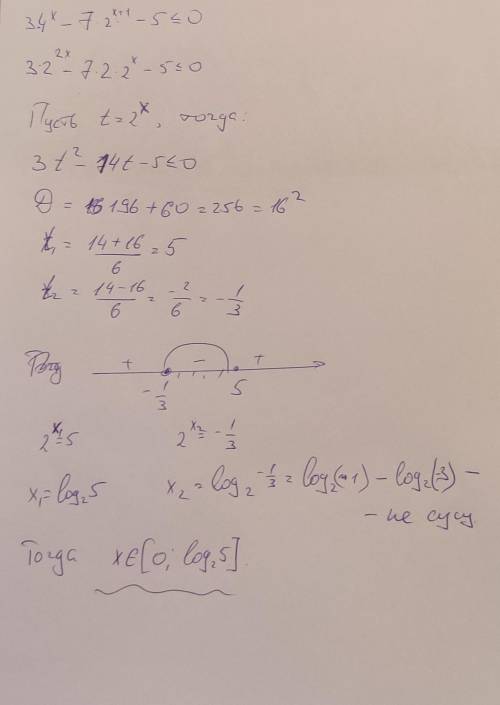 3·4^x − 7·2^{x+1} − 5 ≤ 0
3·2^{2x} − 7·2·2^x − 5 ≤ 0
Пусть t = 2^x, тогда:
3t² − 14t − 5 ≤ 0
D = 196 + 60 = 256 = 16²
t₁ = (14+16)/6 = 5
t₂ = (14−16)/6 = −2/6 = −1/3
+ − +
−1/3 5
2^{x₁} = 5 2^{x₂} = −1/3
x₁ = log₂5 x₂ = log₂ −1/3 = log₂(-1) − log₂(3) −
− не сущ
Тогда x ∈ [0; log₂5]